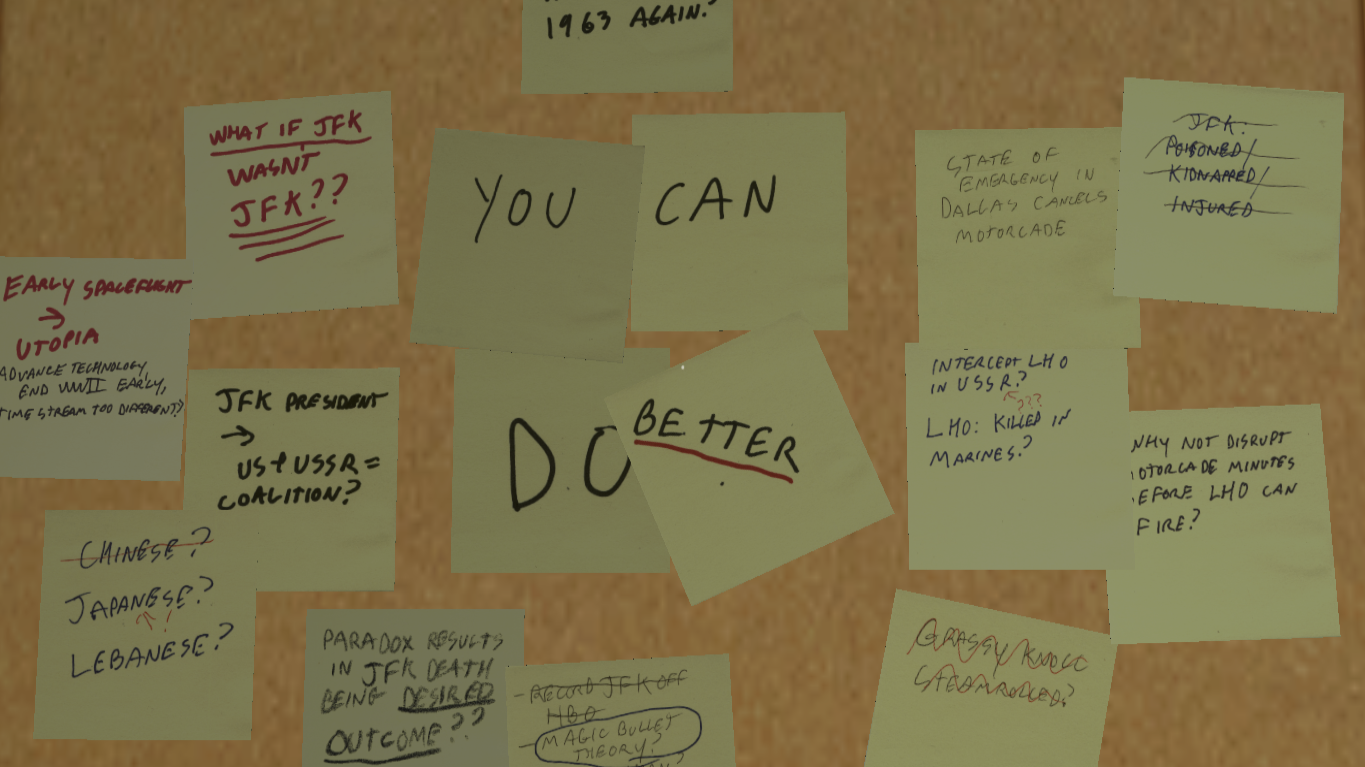 1963 AGAIN?
WHAT IF JFK
WASN'T
JFK??
YOU
CAN
STATE OF
EMERGENCY IN
DALLAS CANCELS
MOTORCADE
JFK:
POISONED/
KIDNAPPED/
INJURED
EARLY SPACEFLIGHT
→
UTOPIA
ADVANCE TECHNOLOGY,
END WWII EARLY,
TIME STREAM TOO DIFFERENT?
JFK PRESIDENT
→
US + USSR =
COALITION?
DO
BETTER
INTERCEPT LHO
IN USSR?
???
LHO: KILLED IN
MARINES?
WHY NOT DISRUPT
MOTORCADE MINUTES
BEFORE LHO CAN
FIRE?
CHINESE?
JAPANESE?
LEBANESE?
PARADOX RESULTS
IN JFK DEATH
BEING DESIRED
OUTCOME??
- RECORD JFK OFF
HBO
- MAGIC BULLET
THEORY?
GRASSY KNOLL
STEAMROLLED?